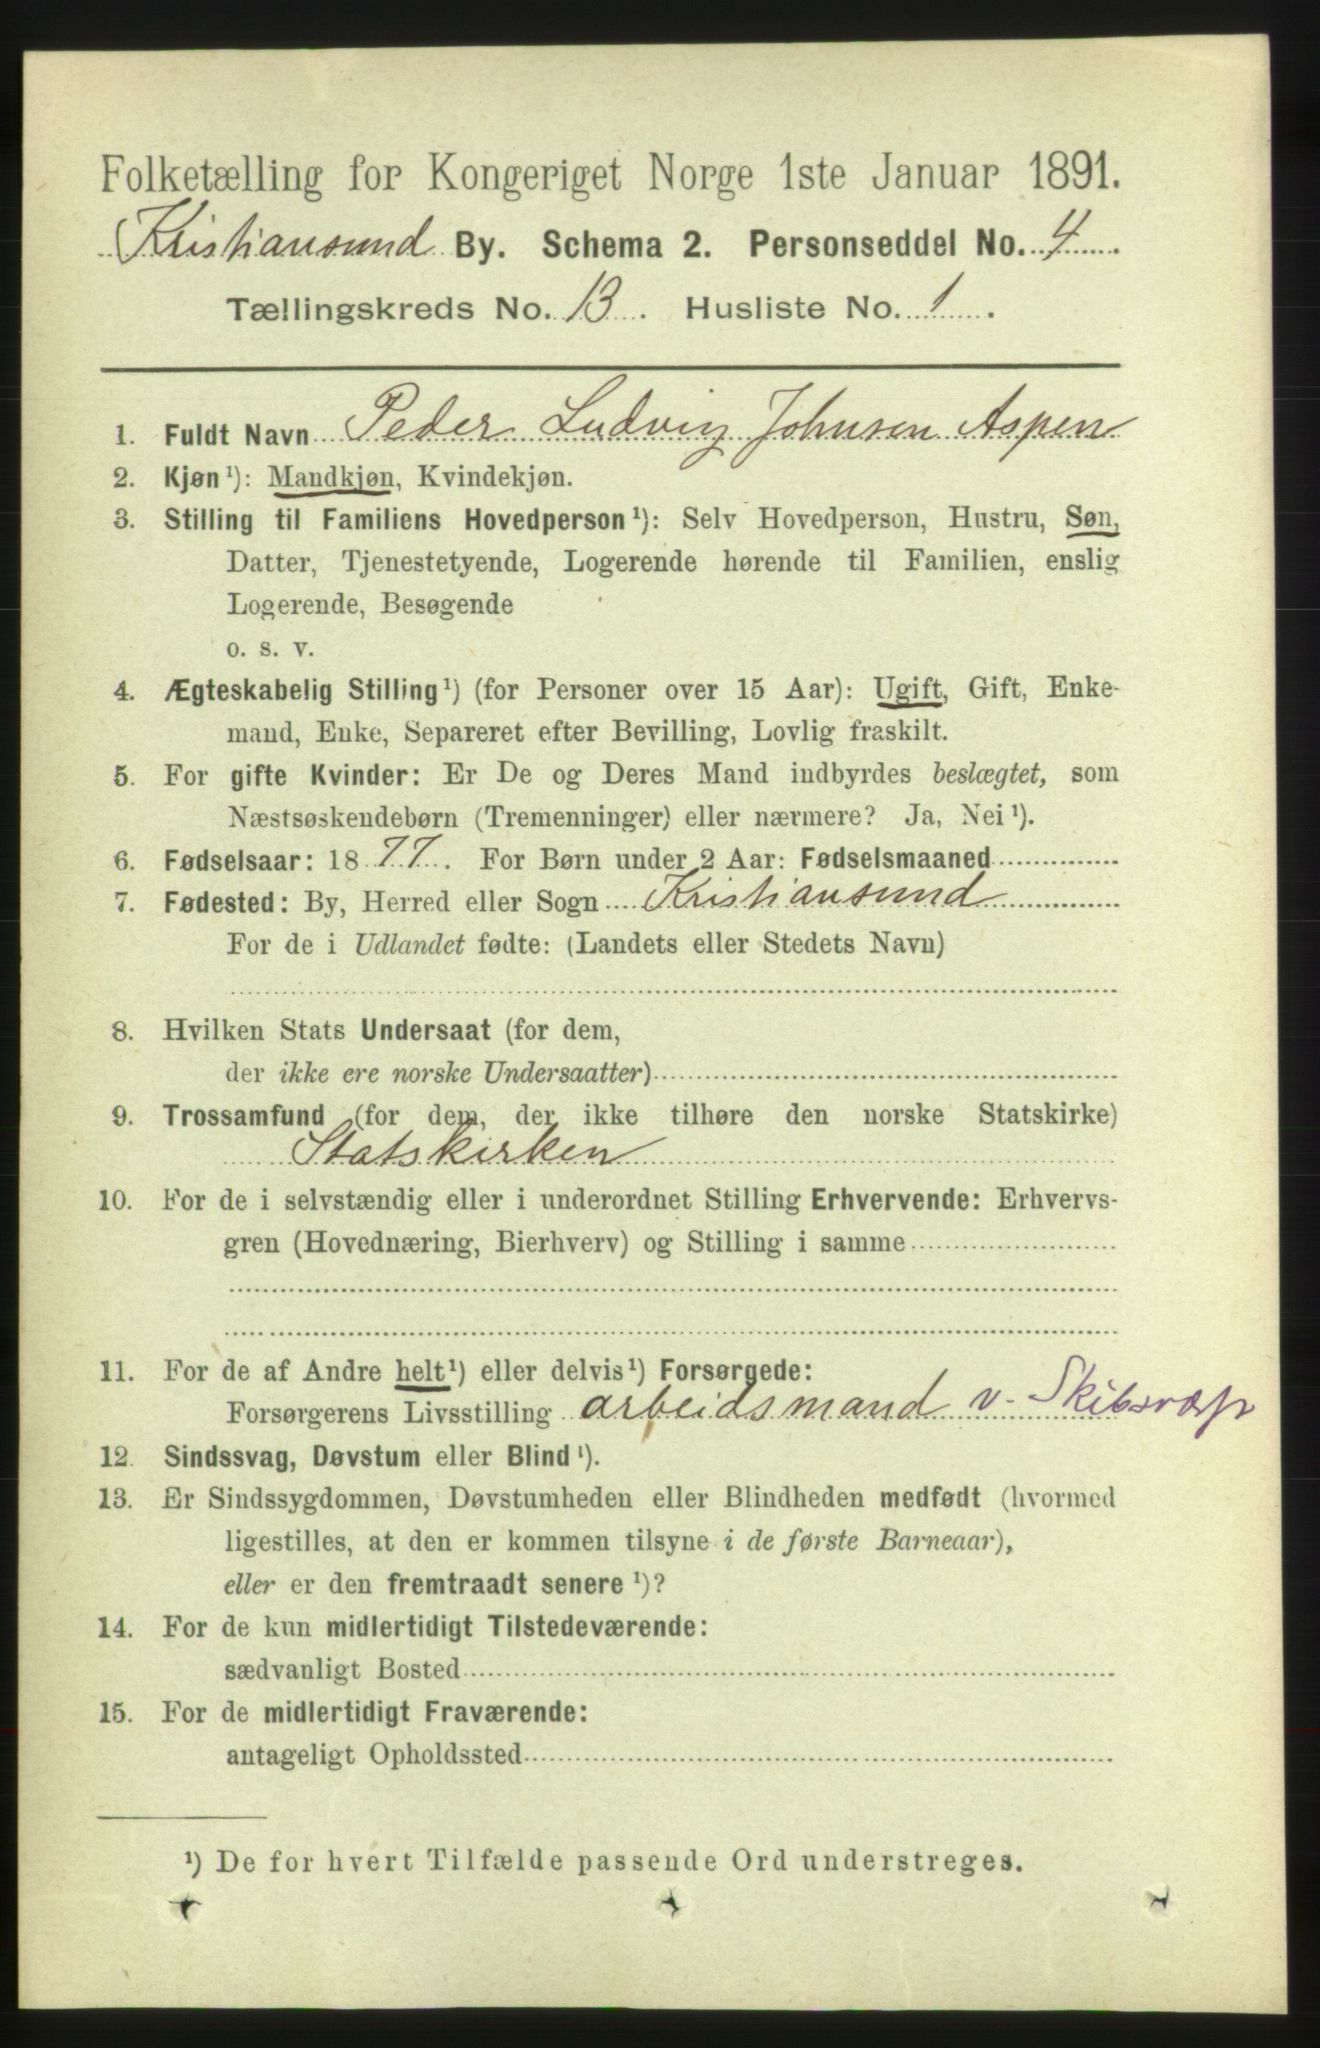 Folketælling for Kongeriget Norge 1ste Januar 1891.
Kristiansund By. Schema 2. Personseddel No. 4
Tællingskreds No. 13. Husliste No. 1.
1. Fuldt Navn Peder Ludvig Johnsen Aspen
2. Kjøn¹): Mandkjøn, Kvindekjøn.
3. Stilling til Familiens Hovedperson¹): Selv Hovedperson, Hustru, Søn,
Datter, Tjenestetyende, Logerende hørende til Familien, enslig
Logerende, Besøgende
o. s. v.
4. Ægteskabelig Stilling¹) (for Personer over 15 Aar): Ugift, Gift, Enke-
mand, Enke, Separeret efter Bevilling, Lovlig fraskilt.
5. For gifte Kvinder: Er De og Deres Mand indbyrdes beslægtet, som
Næstsøskendebørn (Tremenninger) eller nærmere? Ja, Nei¹).
6. Fødselsaar: 1877. For Børn under 2 Aar: Fødselsmaaned
7. Fødested: By, Herred eller Sogn Kristiansund
For de i Udlandet fødte: (Landets eller Stedets Navn)
8. Hvilken Stats Undersaat (for dem,
der ikke ere norske Undersaatter)
9. Trossamfund (for dem, der ikke tilhøre den norske Statskirke)
Statskirken
10. For de i selvstændig eller i underordnet Stilling Erhvervende: Erhvervs-
gren (Hovednæring, Bierhverv) og Stilling i samme
11. For de af Andre helt¹) eller delvis¹) Forsørgede:
Forsørgerens Livsstilling arbeidsmand v. Skibsværft
12. Sindssvag, Døvstum eller Blind¹).
13. Er Sindssygdommen, Døvstumheden eller Blindheden medfødt (hvormed
ligestilles, at den er kommen tilsyne i de første Barneaar),
eller er den fremtraadt senere¹)?
14. For de kun midlertidigt Tilstedeværende:
sædvanligt Bosted
15. For de midlertidigt Fraværende:
antageligt Opholdssted
¹) De for hvert Tilfælde passende Ord understreges.